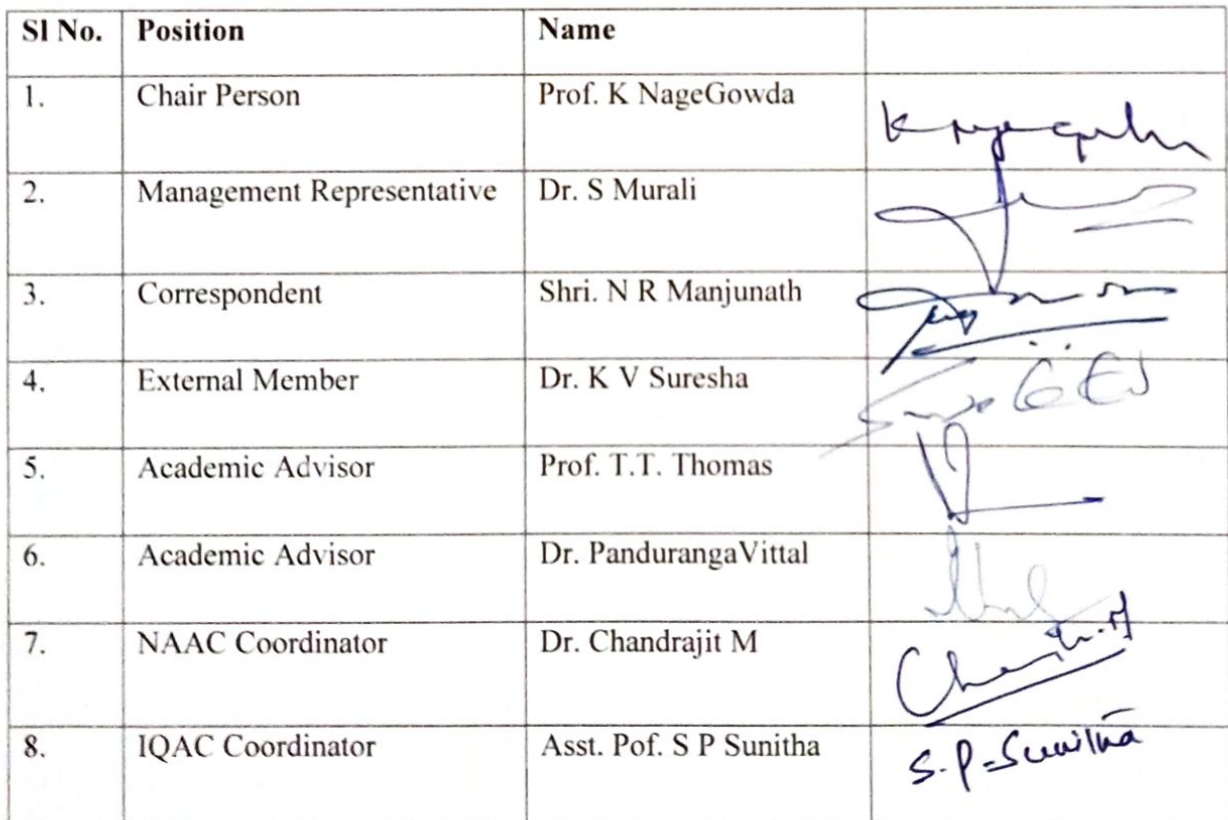 Sl No. Position Name
1. Chair Person Prof. K NageGowda
2. Management Representative Dr. S Murali
3. Correspondent Shri. N R Manjunath
4. External Member Dr. K V Suresha
5. Academic Advisor Prof. T.T. Thomas
6. Academic Advisor Dr. PandurangaVittal
7. NAAC Coordinator Dr. Chandrajit M
8. IQAC Coordinator Asst. Pof. S P Sunitha S.P-Sunitha